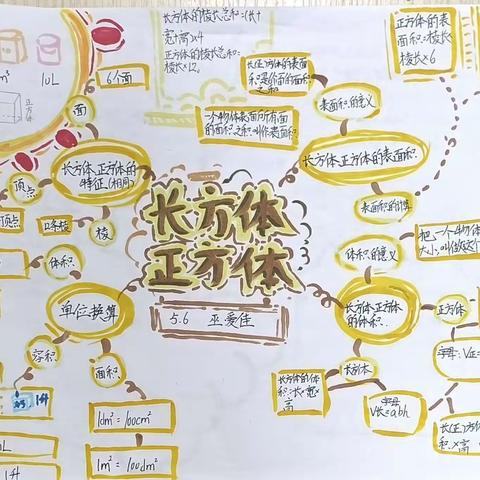 长方体的棱长总和=(长+
宽+高)×4
正方体的棱长总和=
棱长×12。
正方体的表
面积=棱长×
棱长×6
6个面
面
1L
正方体
长(正)方体的表面
积是6个面的面积
之和
表面积的意义
一个物体表面所有面
的面积之和叫作表面积
长方体、正方体的
特征(相同)
顶点
顶点
12条棱
棱
长方体、正方体的表面积
表面积的计算
长方体
正方体
体积
体积的意义
把一个物体
大小,叫做这个
单位换算
5.6 巫爱佳
长方体、正方体
的体积
正方体
容积
面积
长方体
字母:V正=
长方体的体
积=长×宽×
高
字母
V长=abh
1升
1dm²=100cm²
1m²=100dm²
长(正)方体
积×高
1升